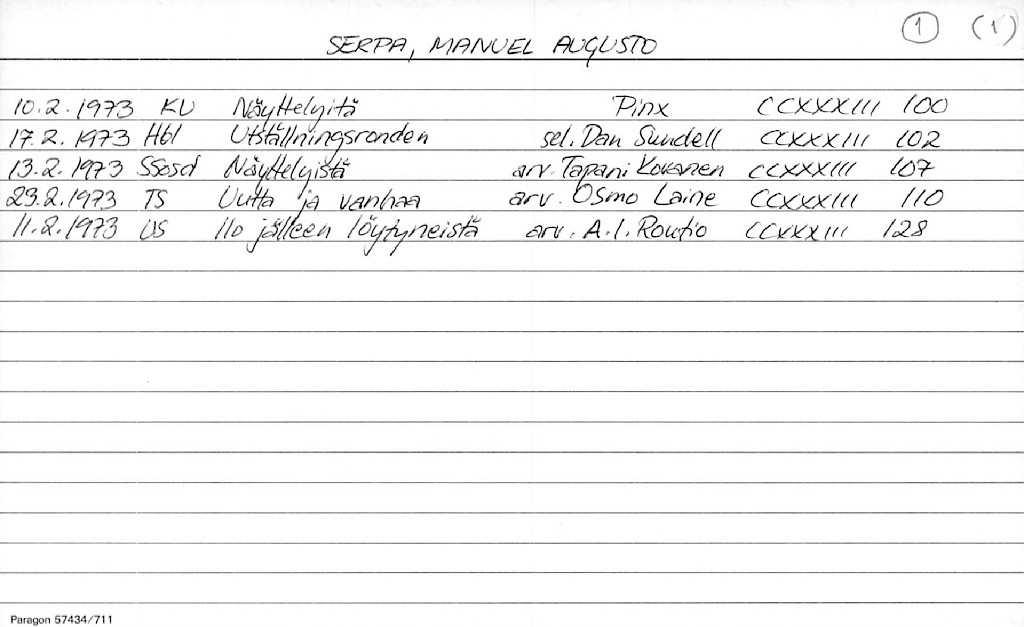 1 (1)
SERPA, MANUEL AUGUSTO
10.2.1973 KU Näyttelyitä Pinx CCXXXIII 100
17.2.1973 Hbl Utställningsronden sel. Dan Sundell CCXXXIII 102
13.2.1973 SSosd Näyttelyistä arv. Tapani Kovanen CCXXXIII 107
23.2.1973 TS Uutta ja vanhaa arv. Osmo Laine CCXXXIII 110
11.2.1973 US Ilo jälleen löytyneistä arv. A.I. Routio CCXXXIII 128
Paragon 57434/711